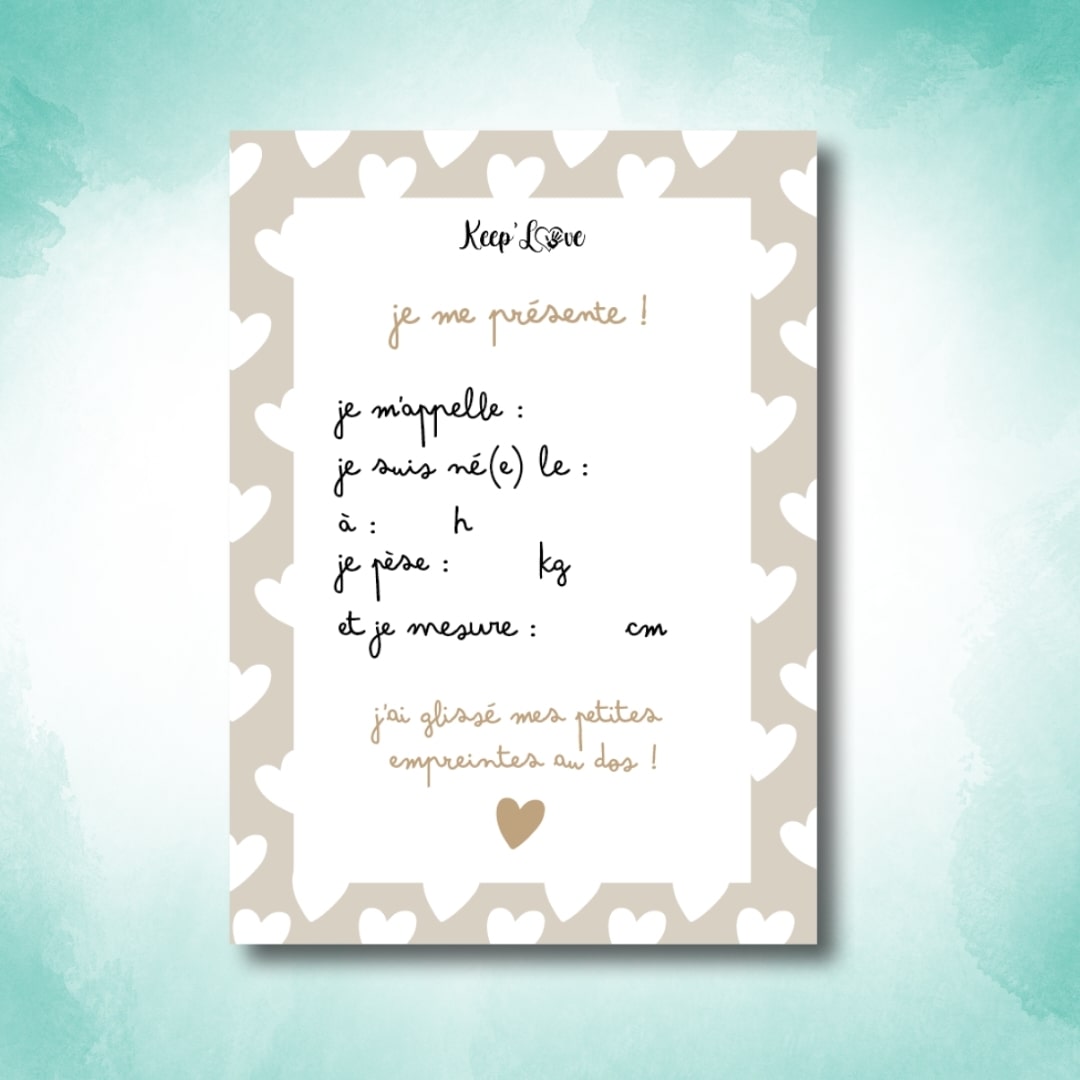 Keep'Love
je me présente !
je m'appelle :
je suis né(e) le :
à : h
je pèse : kg
et je mesure : cm
j'ai glissé mes petites
empreintes au dos !